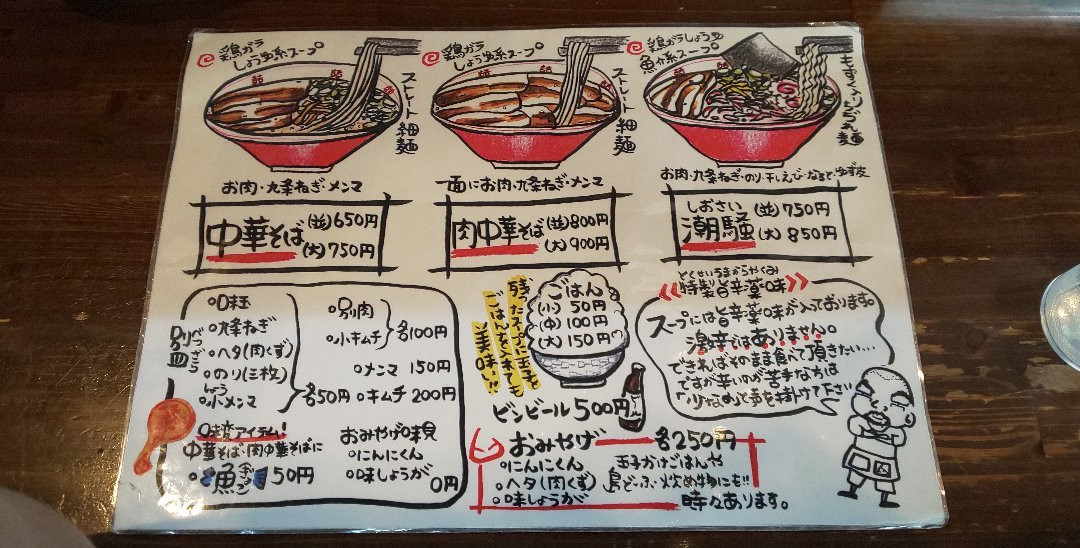 鶏ガラ
しょうゆ系スープ
ストレート細麺
お肉・九条ねぎ・メンマ
中華そば (並)650円
(大)750円
鶏ガラ
しょうゆ系スープ
ストレート細麺
一面にお肉・九条ねぎ・メンマ
肉中華そば (並)800円
(大)900円
鶏ガラしょうゆ
魚介系スープ
もずく入りちぢれ麺
お肉・九条ねぎ・のり・干しえび・なると・ゆず皮
しおさい
潮騒 (並)750円
(大)850円
別皿
べつざら
味玉
九条ねぎ
ヘタ(肉くず)
のり(三枚)
しょう
小メンマ
各50円
別肉
小キムチ
各100円
メンマ 150円
キムチ 200円
味変アイテム!
中華そば・肉中華そばに
魚 50円
おみやげ味見
にんにくん
味しょうが
0円
残ったスープに玉子と
ごはんを入れても
美味い!!
ごはん
(小) 50円
(中) 100円
(大) 150円
ビンビール 500円
おみやげ 各250円
にんにくん
ヘタ(肉くず)
味しょうが
玉子かけごはんや
鳥どーふ・炊め物にも!!
時々あります。
とくせいうまからやくみ
特製旨辛薬味
スープには旨辛薬味が入っております。
激辛ではありません。
できればそのまま食べて頂きたい…
ですが辛いのが苦手な方は
「少なめ」って声を掛けて下さい